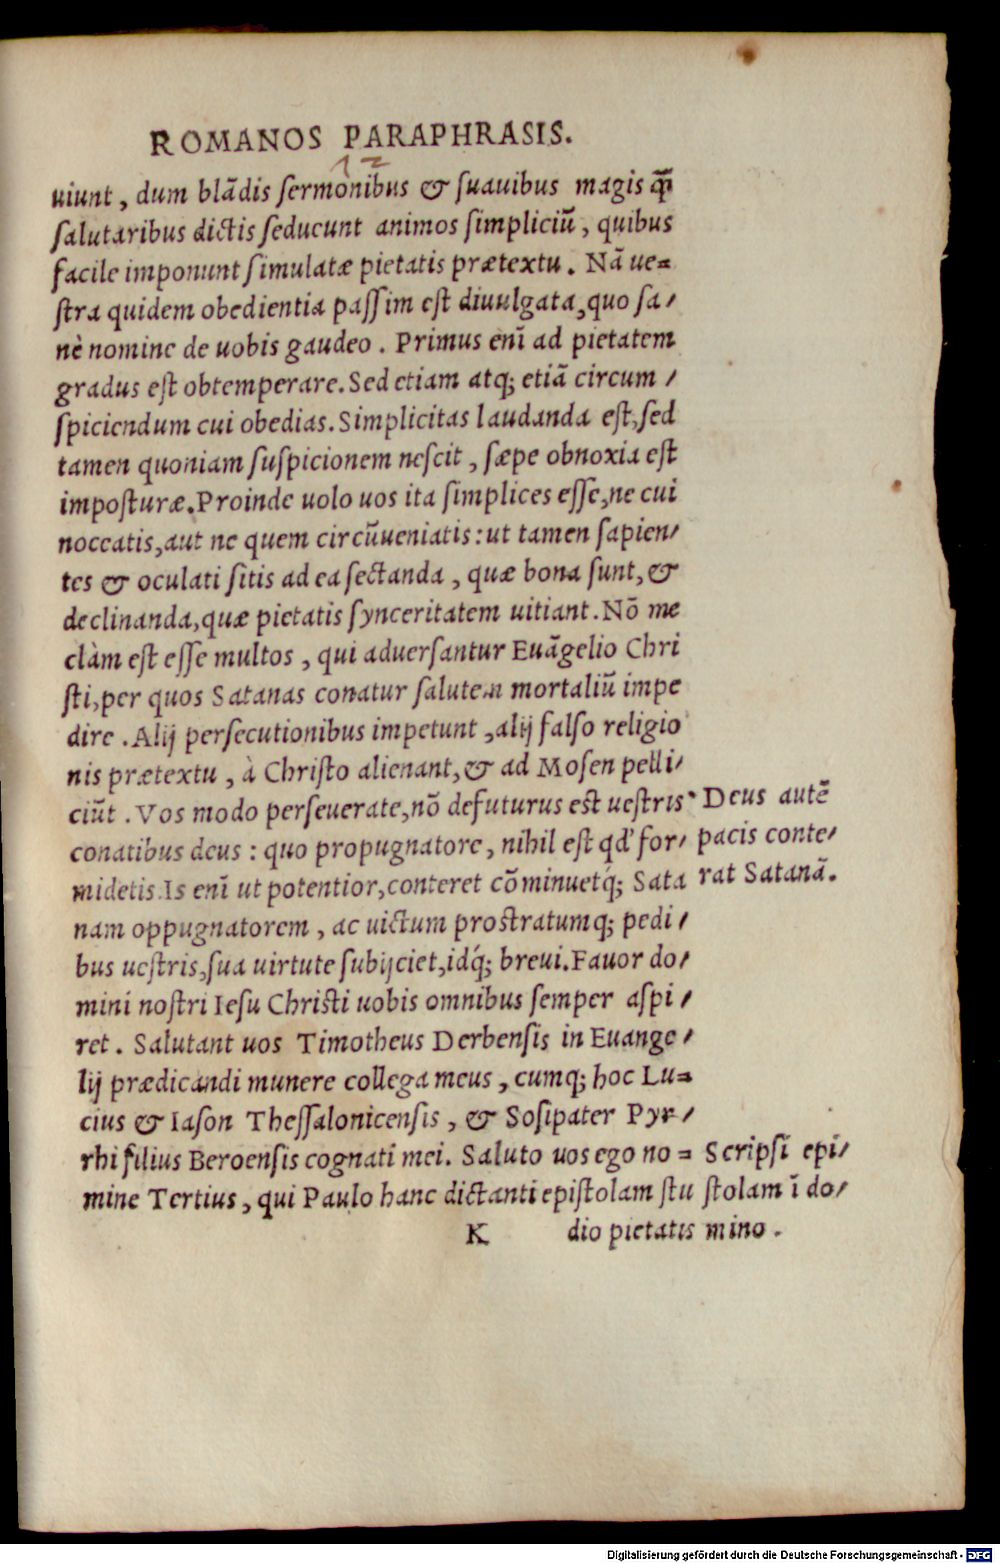 ROMANOS PARAPHRASIS.
12
uiunt, dum blādis ſermonibus & ſuauibus magis q̄
ſalutaribus dictis ſeducunt animos ſimpliciū, quibus
facile imponunt ſimulatæ pietatis prætextu. Nā ue=
ſtra quidem obedientia paſſim eſt diuulgata, quo ſa/
nè nomine de uobis gaudeo. Primus enī ad pietatem
gradus eſt obtemperare. Sed etiam atq; etiā circum/
ſpiciendum cui obedias. Simplicitas laudanda eſt, ſed
tamen quoniam ſuſpicionem neſcit, ſæpe obnoxia eſt
impoſturæ. Proinde uolo uos ita ſimplices eſſe, ne cui
noceatis, aut ne quem circūueniatis: ut tamen ſapien/
tes & oculati ſitis ad ea ſectanda, quæ bona ſunt, &
declinanda, quæ pietatis ſynceritatem uitiant. Nō me
clàm eſt eſſe multos, qui aduerſantur Euāgelio Chri
ſti, per quos Satanas conatur ſalutem mortaliū impe
dire. Alij perſecutionibus impetunt, alij falſo religio
nis prætextu, à Chriſto alienant, & ad Moſen pelli/
ciūt. Vos modo perſeuerate, nō defuturus eſt ueſtris
conatibus deus: quo propugnatore, nihil eſt qd' for/
midetis. Is enī ut potentior, conteret cōminuetq́; Sata
nam oppugnatorem, ac uictum proſtratumq; pedi/
bus ueſtris, ſua uirtute ſubijciet, idq́; breui. Fauor do/
mini noſtri Ieſu Chriſti uobis omnibus ſemper aſpi/
ret. Salutant uos Timotheus Derbenſis in Euange/
lij prædicandi munere collega meus, cumq; hoc Lu=
cius & Iaſon Theſſalonicenſis, & Soſipater Pyr/
rhi filius Beroenſis cognati mei. Saluto uos ego no=
mine Tertius, qui Paulo hanc dictanti epiſtolam ſtu
K dio pietatis
Deus autē
pacis conte/
rat Satanā.
Scripſi epi/
ſtolam ī do/
mino.
Digitalisierung gefördert durch die Deutsche Forschungsgemeinschaft - DFG